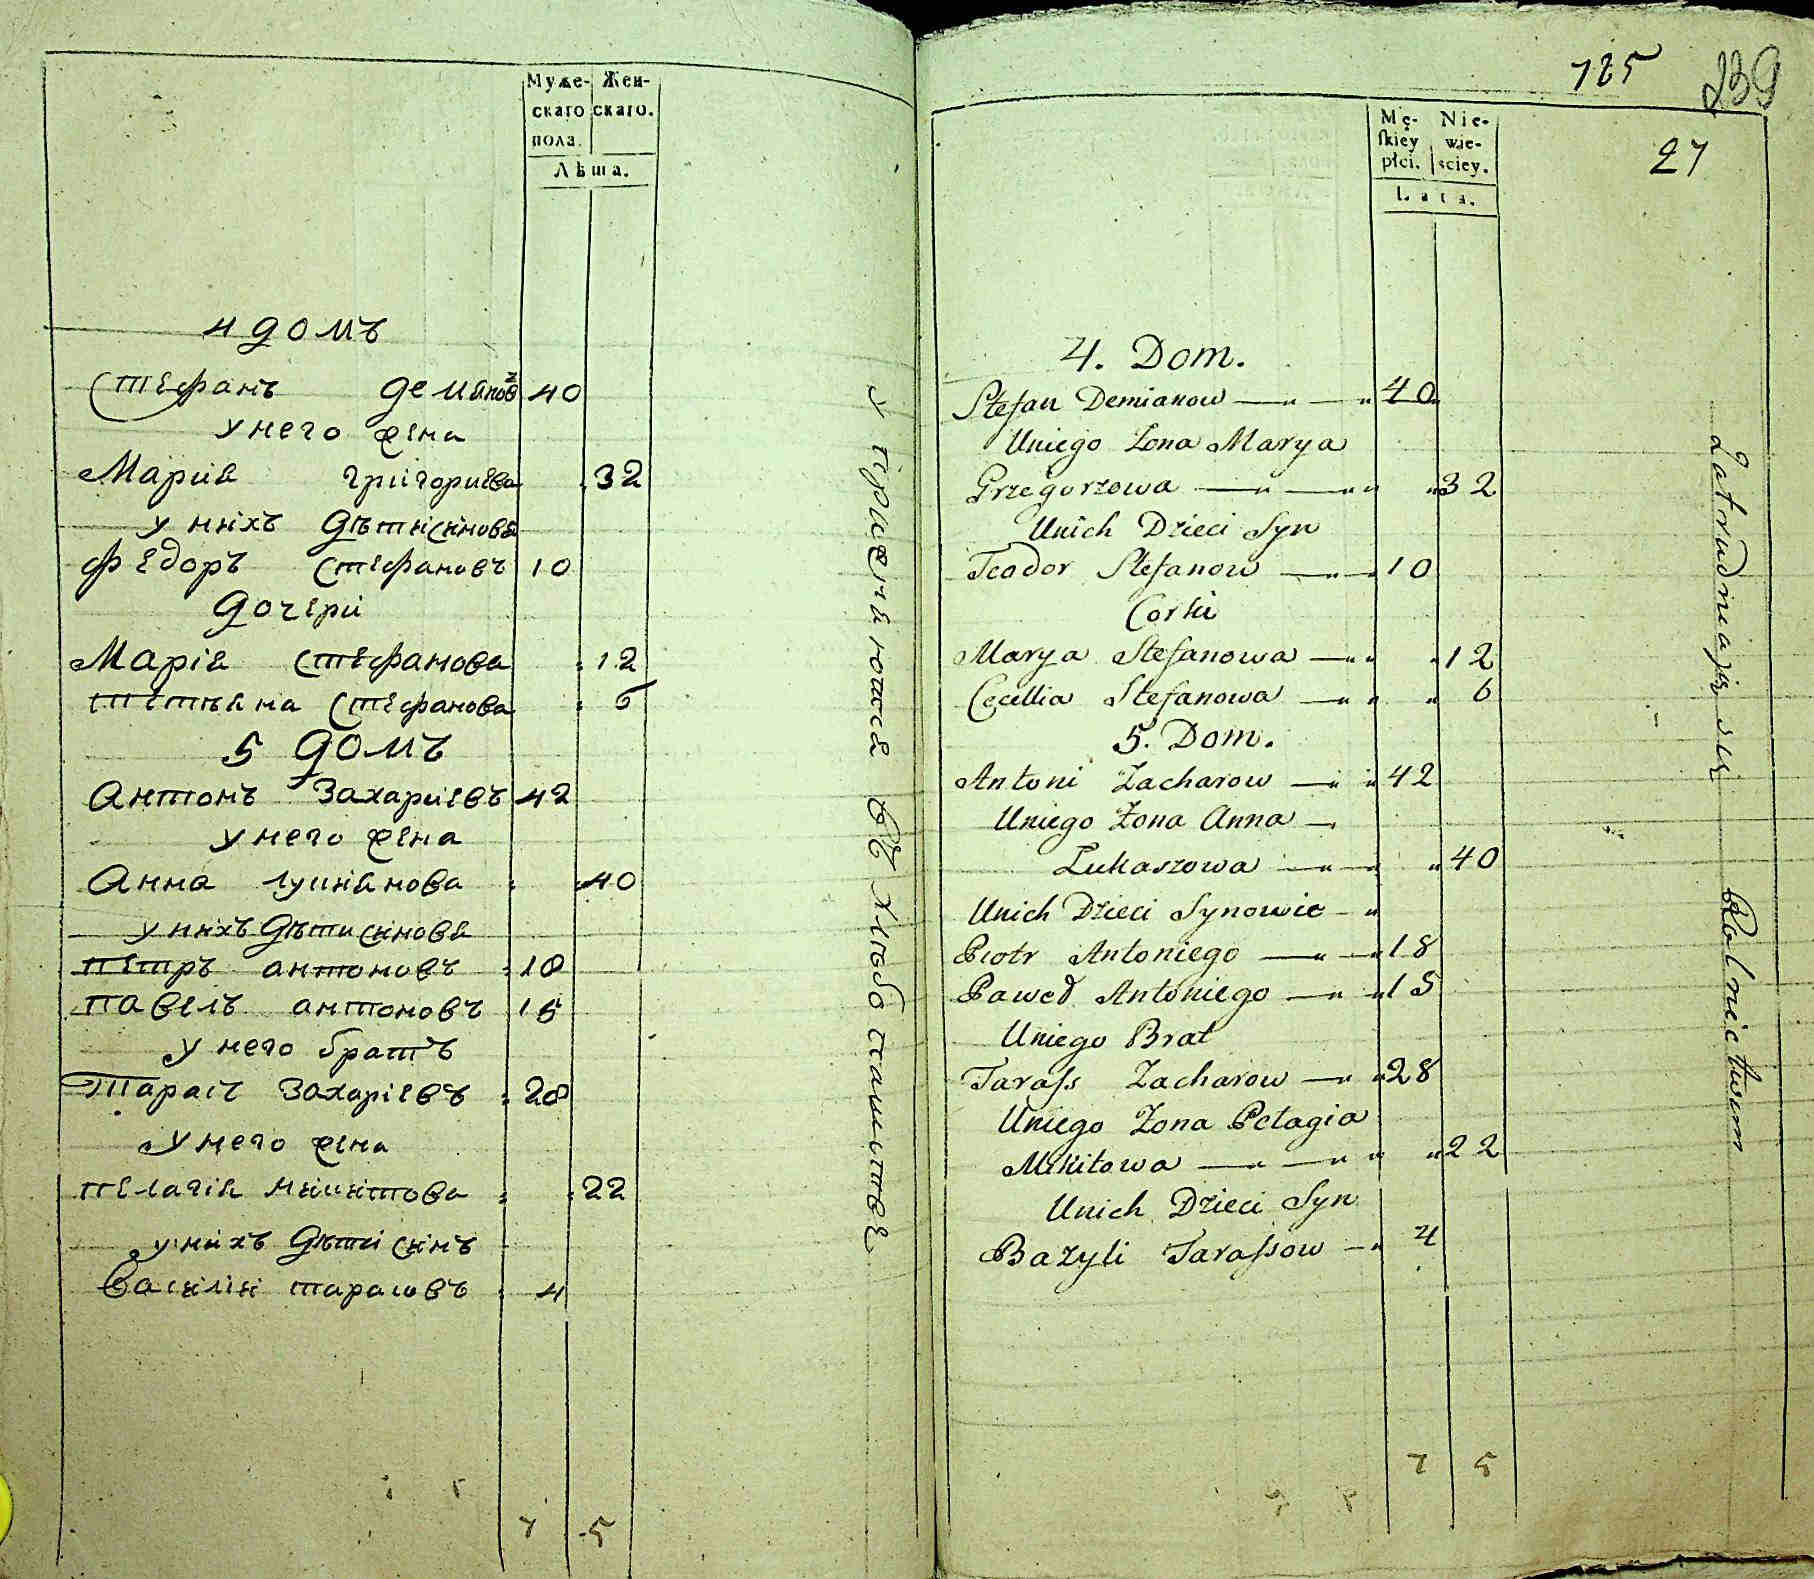 Муже- Жен-
скаго скаго.
пола.
Лѣта.
4 домъ
Стефанъ Демяновъ 40
у него жена
Мария Григориева 32
у нихъ дѣти синовя
Федоръ Стефановъ 10
дочери
Марія Стефанова 12
Тетяна Стефанова 6
5 домъ
Антонъ Захариевъ 42
у него жена
Анна 40
у нихъ дѣти синовя
Петръ Антоновъ 18
Павелъ Антоновъ 15
у него братъ
Тарасъ Захаріевъ 28
у него жена
Пелагія Микитова 22
у нихъ дѣти синъ
Василіи Тарасовъ 4
7 5
упражняются въ хлебопашестве
125 239
27
Mę- Nie-
skiey wie-
płci. sciey.
Lata.
4. Dom.
Stefan Demianow 40
Uniego Zona Marya
Grzegorzowa 32
Unich Dzieci Syn
Teodor Stefanow 10
Corki
Marya Stefanowa 12
Cecellia Stefanowa 6
5. Dom.
Antoni Zacharow 42
Uniego Zona Anna
Lukaszowa 40
Unich Dzieci Synowie
Piotr Antoniego 18
Paweł Antoniego 15
Uniego Brat
Tarass Zacharow 28
Uniego Zona Pelagia
Mikitowa 22
Unich Dzieci Syn
Bazyli Tarassow 4
7 5
Zatrudniaią się Rolnictwem